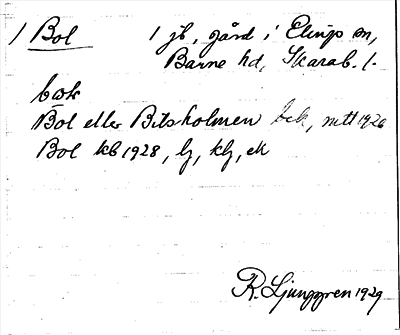 1 Bol 1 jb, gård i Elings sn,
Barne hd, Skarab. l.
bωk
Bol eller Bitsholmen bek, mtt 1926
Bol kb 1928, lj, klj, ek
R. Ljunggren 1929